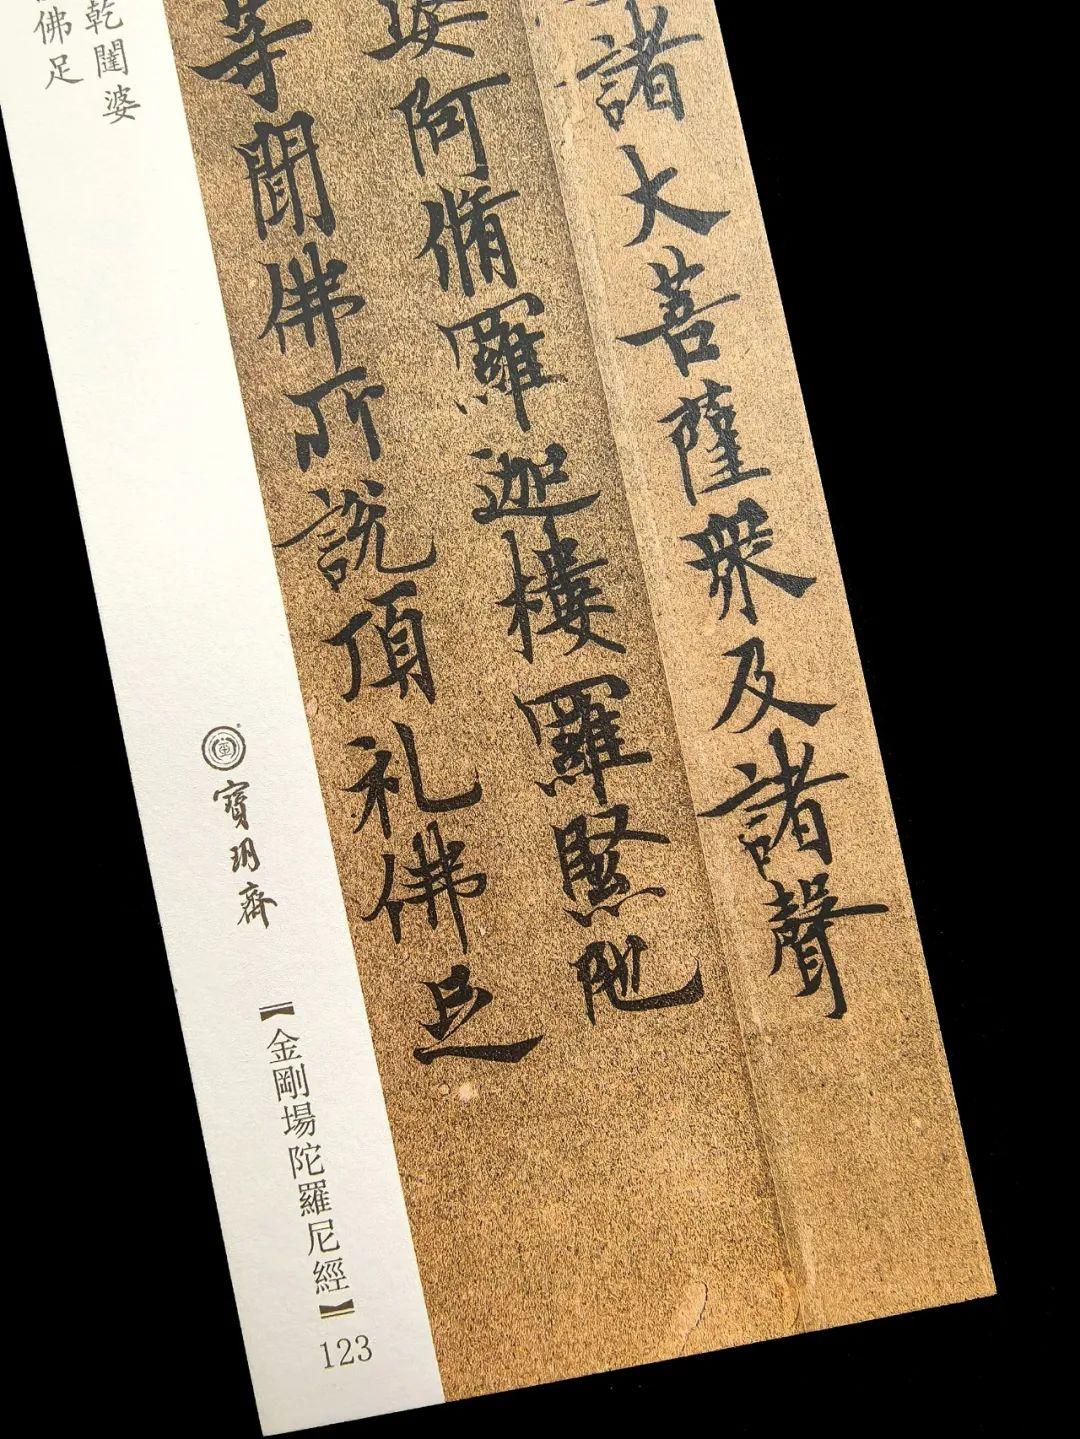 諸大菩薩眾及諸聲
婆阿脩羅迦樓羅緊陁
等聞佛所說頂礼佛足
乾闥婆
佛足
寶玥齋
【金剛場陀羅尼經】
123